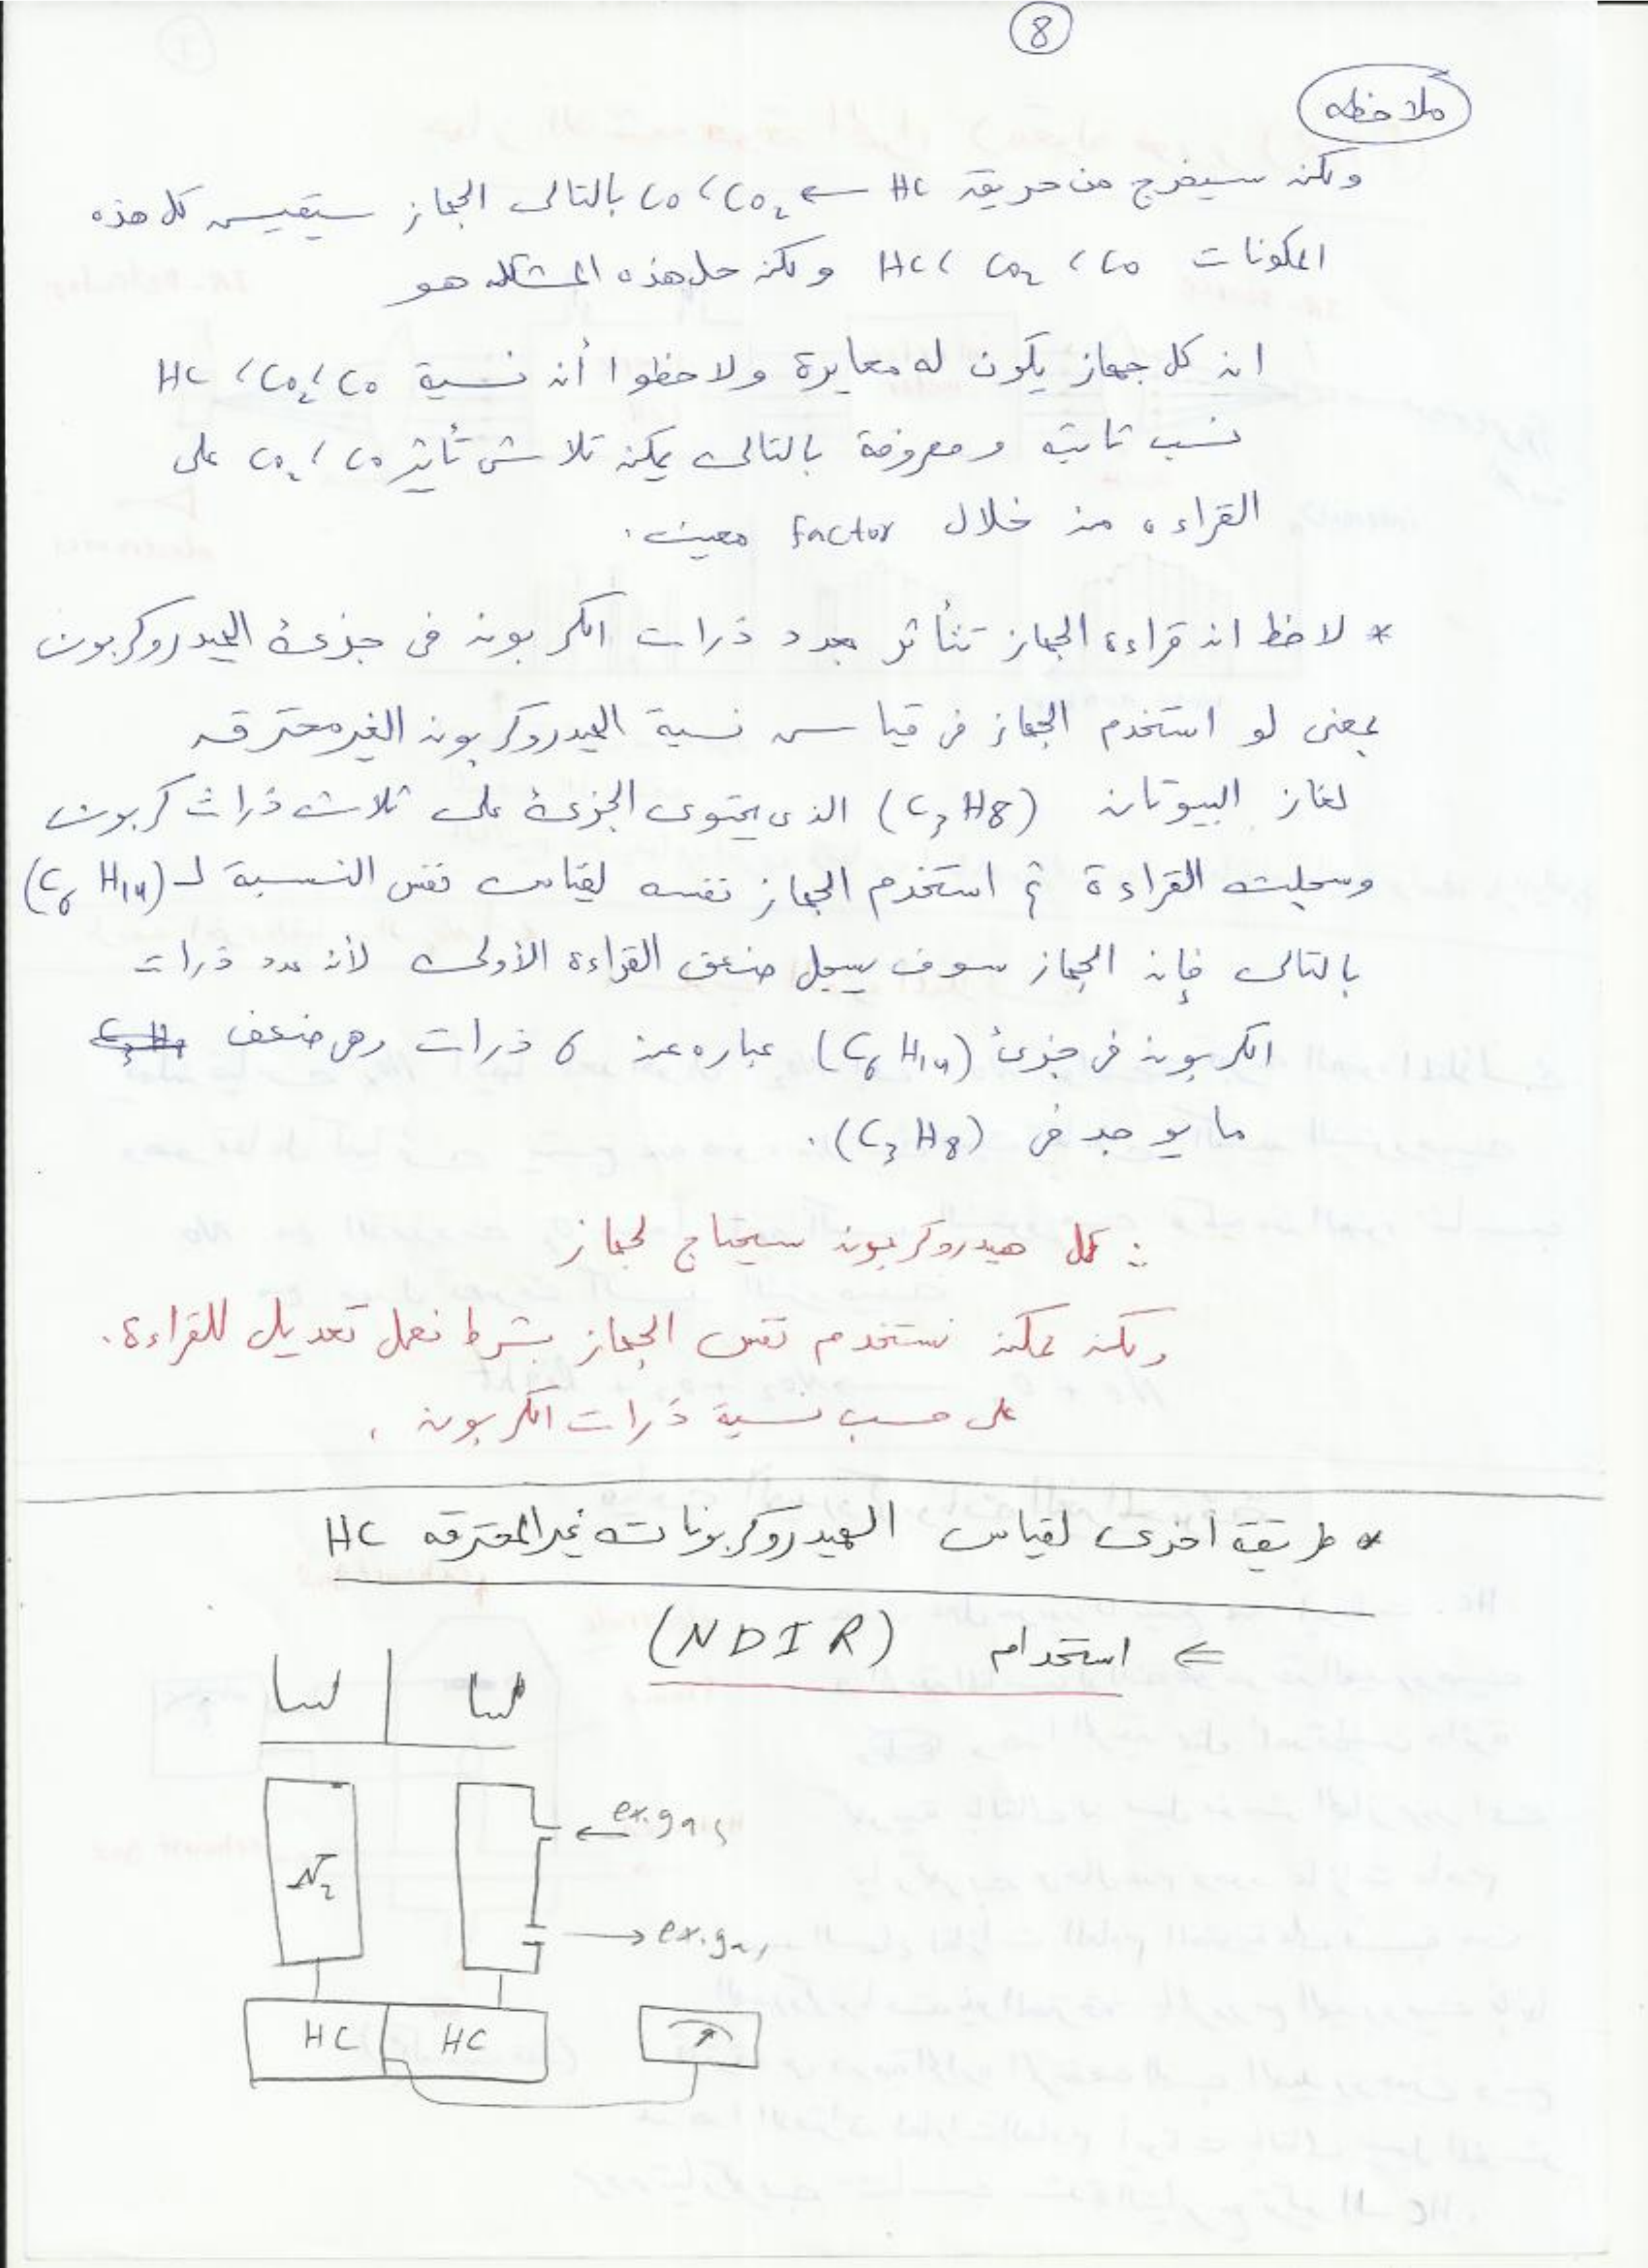 8
ملاحظه
ولكن سيخرج من حريقه HC ← CO₂، CO بالتالى الجهاز سيقيس كل هذه
المكونات CO، CO₂، HC ولكن حل هذه المشكله هو
ان كل جهاز يكون له معايرة ولاحظوا أن نسبة CO، CO₂، HC
نسب ثابته ومعروفة بالتالى يمكن تلاشى تأثير CO، CO₂ على
القراءه من خلال factor معين.
* لاحظ ان قراءة الجهاز تتأثر بعدد ذرات الكربون فى جزىء الهيدروكربون
بمعنى لو استخدم الجهاز فى قياس نسبة الهيدروكربون الغير محترقه
لغاز البيوتان (C₃H8) الذى يحتوى الجزىء على ثلاث ذرات كربون
وسجلت القراءة ثم استخدم الجهاز نفسه لقياس نفس النسبة لـ (C₆H₁₄)
بالتالى فإن الجهاز سوف يسجل ضعف القراءة الأولى لأن عدد ذرات
الكربون فى جزىء (C₆H₁₄) عباره عن 6 ذرات وهى ضعف
ما يوجد فى (C₃H₈).
∴ كل هيدروكربون سيحتاج لجهاز
ولكن ممكن نستخدم نفس الجهاز بشرط نعمل تعديل للقراءة.
على حسب نسبة ذرات الكربون.
* طريقة أخرى لقياس الهيدروكربونات غير المحترقه HC
⇐ استخدام (NDIR)
ex.gas
N₂
ex.gas
HC HC